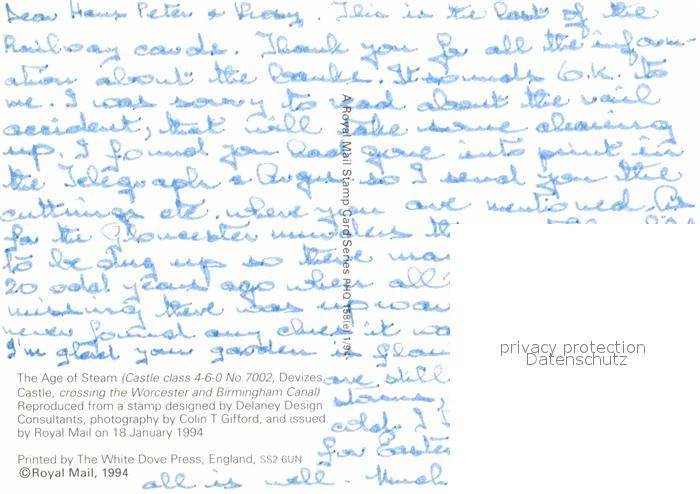 Dear Hans Peter & . This is the last of the
Railway cards. Thank you for all the inform-
ation about the banks. It sounds O.K. to
me. I was sorry to read about the rail
accident, that will take some cleaning
up. I found you had gone into print in
the Telegraph & so I send you the
cuttings etc. where you are mentioned. As
for the Gloucester murders th
to be dug up so there wa
20 odd years ago when all
missing there was uproar
never found any clues it wa
I'm glad your garden is
are still
storms,
cold. I
for Easter
all is well. Much
A Royal Mail Stamp Card Series PHQ 158(e) 1/94
privacy protection
Datenschutz
The Age of Steam (Castle class 4-6-0 No.7002, Devizes
Castle, crossing the Worcester and Birmingham Canal)
Reproduced from a stamp designed by Delaney Design
Consultants, photography by Colin T Gifford, and issued
by Royal Mail on 18 January 1994
Printed by The White Dove Press, England, SS2 6UN
©Royal Mail, 1994